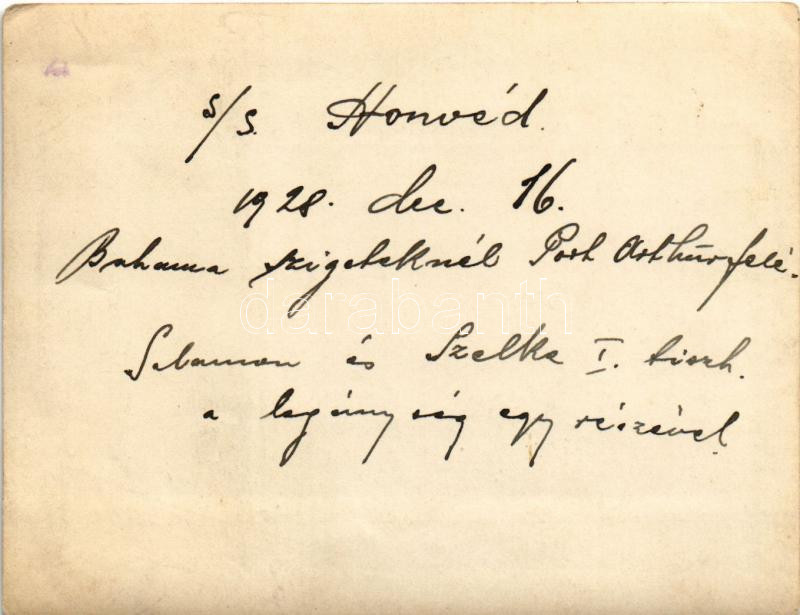 s/s. Honvéd.
1928. dec. 16.
Bahama szigeteknél Port Arthur felé.
és Szelke I. tiszth.
a legénység egy részével
darabanth